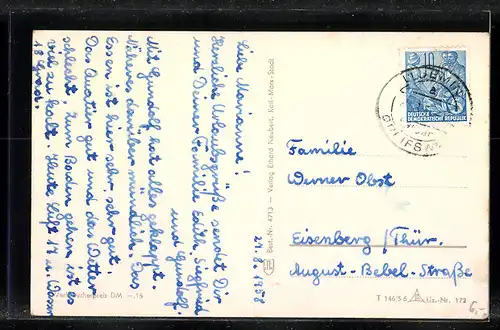 Liebe Marianne!
Herzliche Urlaubsgrüße sendet Dir
und Deiner Familie Edith, Siegfried
und Gundolf.
Mit Gundolf hat alles geklappt.
Näheres darüber mündlich. Das
Essen ist hier sehr, sehr gut.
Das Quartier gut und das Wetter
schlecht. Zum Baden gehen ist es
viel zu kalt. Heute Luft 17 u. Wasser
18 Grad.
Verbraucherpreis DM –,15
Best.-Nr. 4713 – Verlag Erhard Neubert, Karl-Marx-Stadt
21.8.1958
10
DEUTSCHE
DEMOKRATISCHE REPUBLIK
Familie
Werner Obst
Eisenberg /Thür.
August-Bebel-Straße
T 146/5 6 Liz.-Nr. 172
6,-